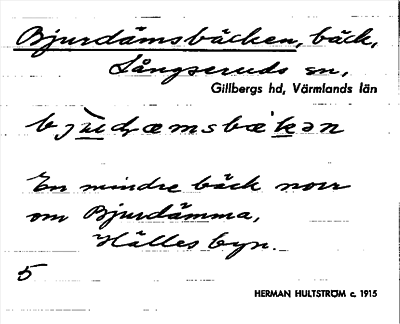 Bjurdämsbäcken, bäck,
Långseruds sn,
Gillbergs hd, Värmlands län
bju̲dæmsbækən
En mindre bäck norr
om Bjurdämma,
Hälles byn.
5
HERMAN HULTSTRÖM c. 1915